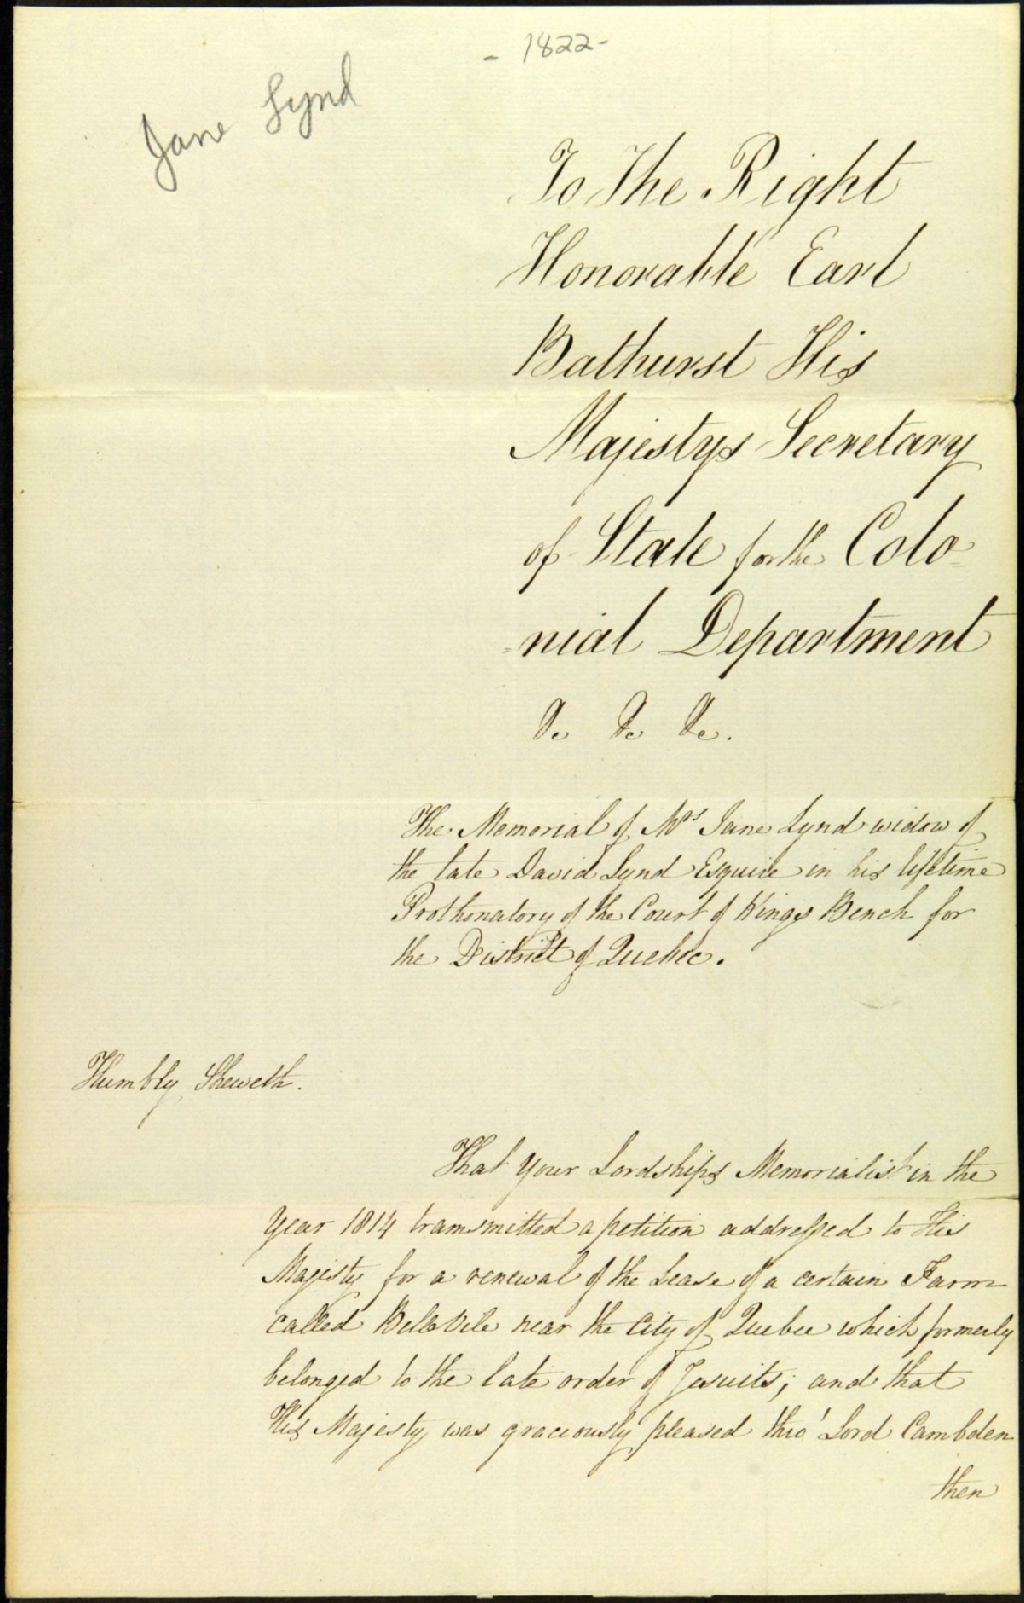 - 1822 -
Jane Lynd
To The Right
Honorable Earl
Bathurst His
Majestys Secretary
of State for the Colo
nial Department
&c &c &c.
The Memorial of Mrs Jane Lynd widow of
the late David Lynd Esquire in his lifetime
Prothonatory of the Court of Kings Bench for
the District of Quebec.
Humbly Sheweth.
That your Lordships Memorialist in the
Year 1814 transmitted a petition addressed to His
Majesty for a renewal of the Lease of a certain Farm
called near the City of Quebec which formerly
belonged to the late order of Jesuits; and that
His Majesty was graciously pleased thro' Lord Cambden
then